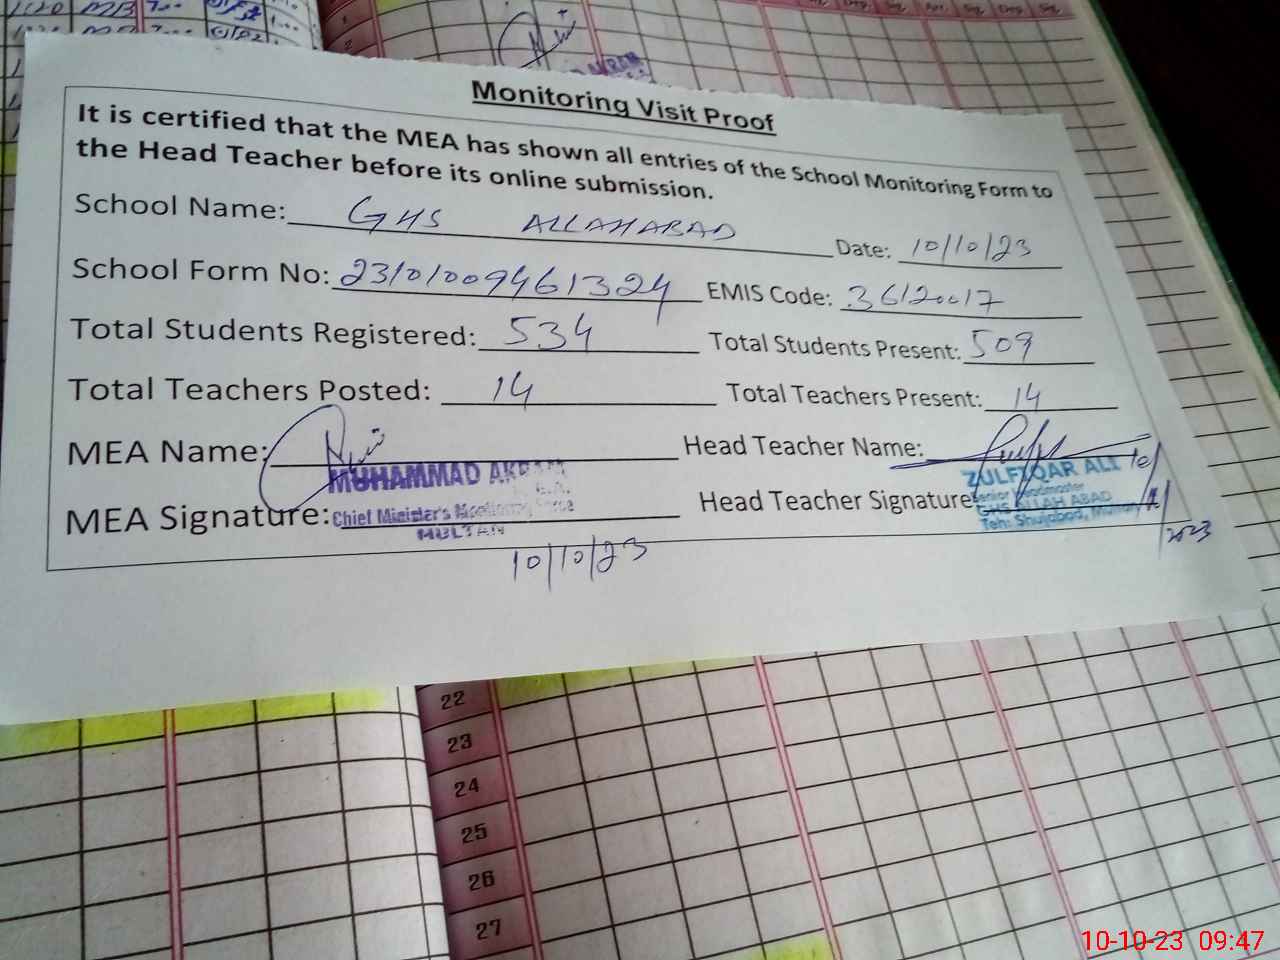 Monitoring Visit Proof
It is certified that the MEA has shown all entries of the School Monitoring Form to
the Head Teacher before its online submission.
School Name: GHS ALLAHABAD Date: 10/10/23
School Form No: 23101009461324 EMIS Code: 36120017
Total Students Registered: 534 Total Students Present: 509
Total Teachers Posted: 14 Total Teachers Present: 14
MEA Name: Head Teacher Name:
MUHAMMAD AKRAM
ZULFIQAR ALI
MEA Signature: Head Teacher Signature
Chief Minister's Monitoring Force
MULTAN
Senior Headmaster
GHS ALLAH ABAD
Teh: Shujabad, Multan
10/10/23
2023
22
23
24
25
26
27
10-10-23 09:47